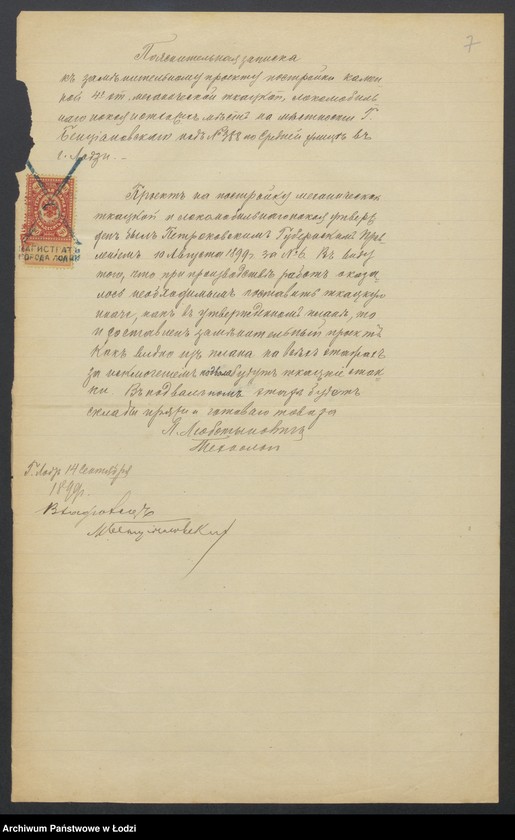 7
Пояснительная записка
къ замѣнительному проекту постройки камен
ной 4х от. механической ткацкой, локомобиль
наго покоя и отхожихъ мѣстъ на мѣстности Г.
подъ № 788 по Средней улицѣ въ
г. Лодзи. -
Проектъ на постройку механической
ткацкой и локомобильнаго покоя утверж
денъ былъ Петроковскимъ Губернскимъ Прав
леніемъ 10 Августа 1899 г за № 6. Въ виду
того, что при производствѣ работъ оказа
лось необходимымъ поставить ткацкую
иначе, какъ въ утвержденномъ планѣ, то
и доставленъ замѣнительный проектъ
Какъ видно изъ плана на всѣхъ этажахъ
за исключеніемъ подвала будутъ ткацкіе стан
ки. Въ подвальномъ этажѣ будутъ
склады пряжи и готоваго товара
Технолог
Г. Лодзь 14 Сентября
1899 г.
Владѣлецъ
МАГИСТРАТЪ
ГОРОДА ЛОДЗИ
Archiwum Państwowe w Łodzi